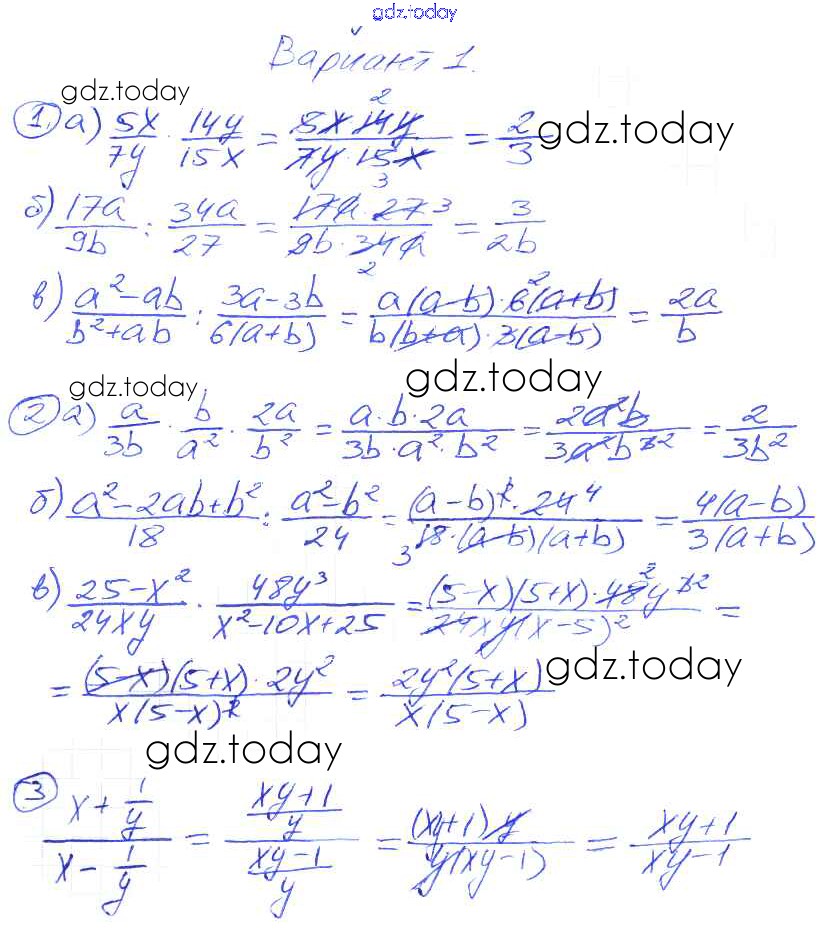 gdz.today
Вариант 1.
gdz.today
1. а) 5x/7y · 14y/15x = 5x·14y/7y·15x = 2/3 gdz.today
2
3
б) 17a/9b : 34a/27 = 17a·27/9b·34a = 3/2b
3
2
в) a²-ab/b²+ab : 3a-3b/6(a+b) = a(a-b)·6(a+b)/b(b+a)·3(a-b) = 2a/b
2
gdz.today gdz.today
2 а) a/3b · b/a² · 2a/b² = a·b·2a/3b·a²·b² = 2a²b/3a²b³ 2 = 2/3b²
б) a²-2ab+b²/18 : a²-b²/24 = (a-b)²·24/18·(a-b)(a+b) = 4(a-b)/3(a+b)
4
3
в) 25-x²/24xy · 48y³/x²-10x+25 = (5-x)(5+x)·48y³/24xy(x-5)² =
2 2
= (5-x)(5+x)·2y²/x(5-x)² = 2y²(5+x)/x(5-x) gdz.today
gdz.today
3 x+1/y / x-1/y = xy+1/y / xy-1/y = (xy+1)y/y(xy-1) = xy+1/xy-1